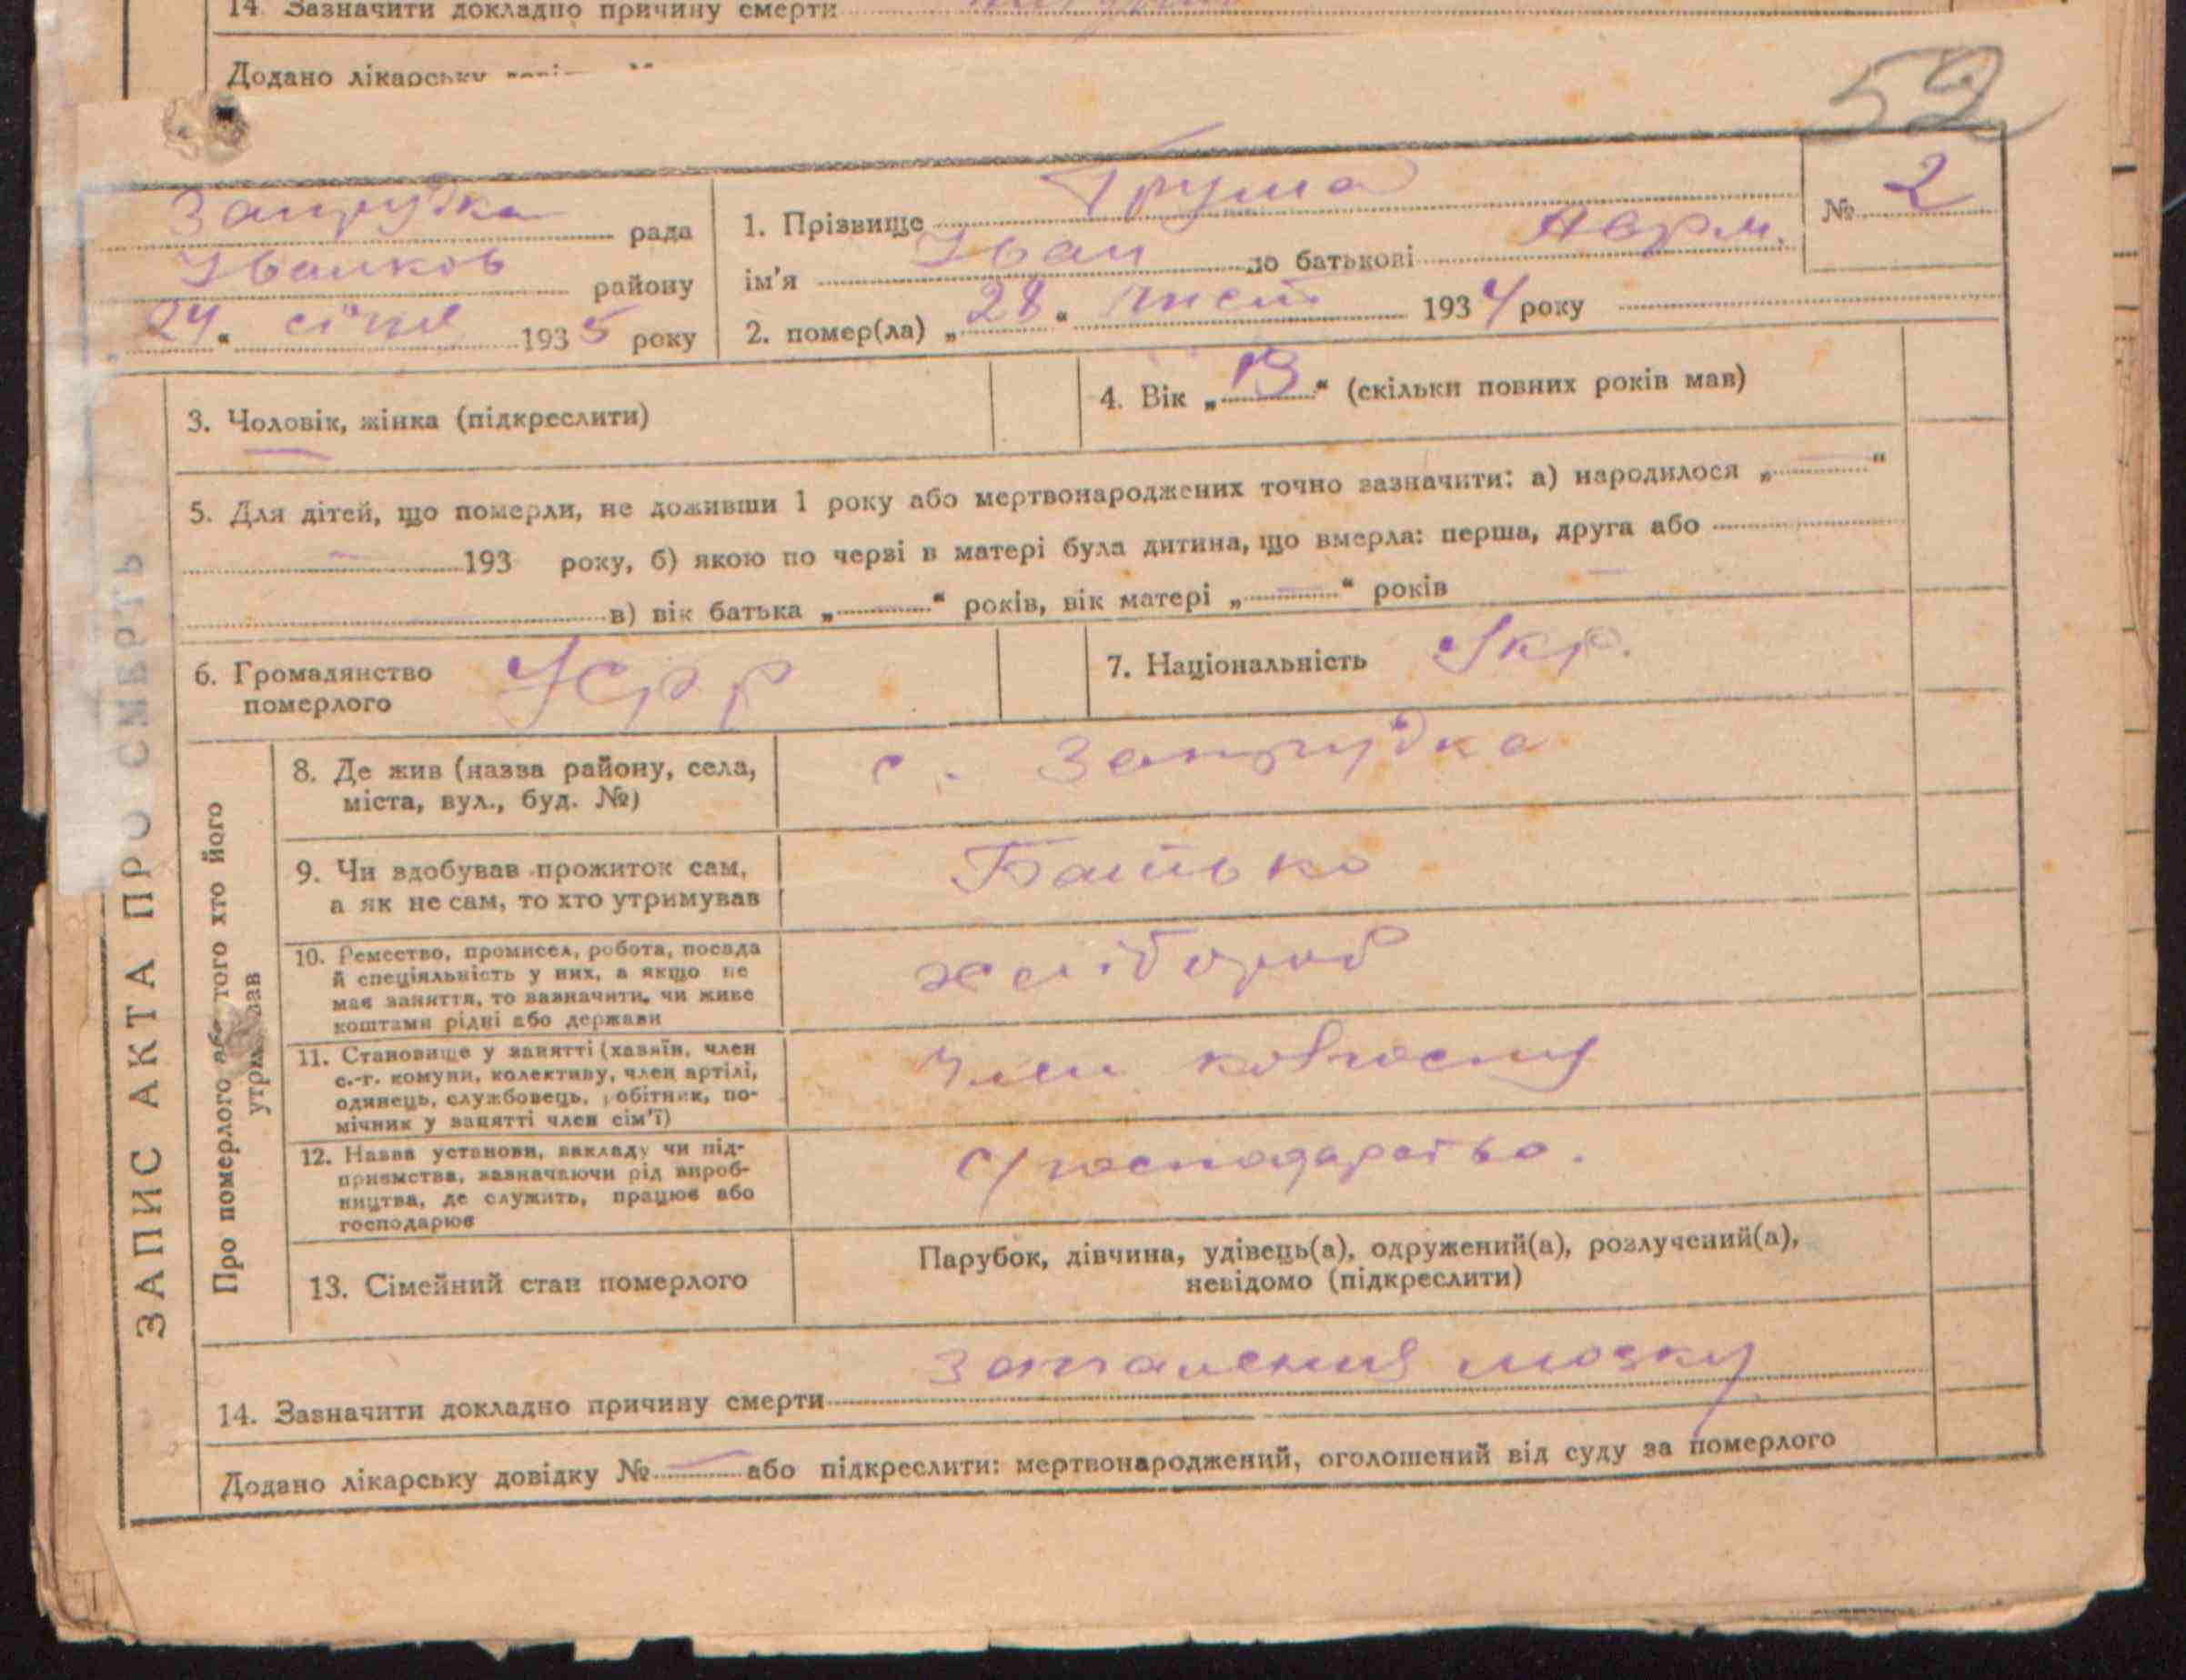 14. Зазначити докладно причину смерти
Додано лікарську
52
Запрудка рада
Іванков району
24 " січня 1935 року
1. Прізвище Грума
ім'я Іван по батькові Аврм.
2. помер(ла) „ 28 " лист 1934 року
№ 2
3. Чоловік, жінка (підкреслити)
4. Вік „ 13 " (скільки повних років мав)
5. Для дітей, що померли, не доживши 1 року або мертвонароджених точно зазначити: а) народилося „ — "
— 193 року, б) якою по черзі в матері була дитина, що вмерла: перша, друга або —
в) вік батька „ — " років, вік матері „ — " років
6. Громадянство
померлого
УСРР
7. Національність Укр.
ЗАПИС АКТА ПРО СМЕРТЬ
Про померлого або того хто його
утримував
8. Де жив (назва району, села,
міста, вул., буд. №)
с. Запрудка
9. Чи здобував прожиток сам,
а як не сам, то хто утримував
Батько
10. Ремество, промисел, робота, посада
й спеціяльність у них, а якщо не
має заняття, то зазначити, чи живе
коштами рідні або держави
хлібороб
11. Становище у занятті (хазяїн, член
с.-г. комуни, колективу, член артілі,
одинець, службовець, робітник, по-
мічник у занятті член сім'ї)
Член колгоспу
12. Назва установи, закладу чи під-
приємства, зазначаючи рід вироб-
ництва, де служить, працює або
господарює
С/господарство.
13. Сімейний стан померлого
Парубок, дівчина, удівець(а), одружений(а), розлучений(а),
невідомо (підкреслити)
14. Зазначити докладно причину смерти запалення мозку
Додано лікарську довідку № — або підкреслити: мертвонароджений, оголошений від суду за померлого